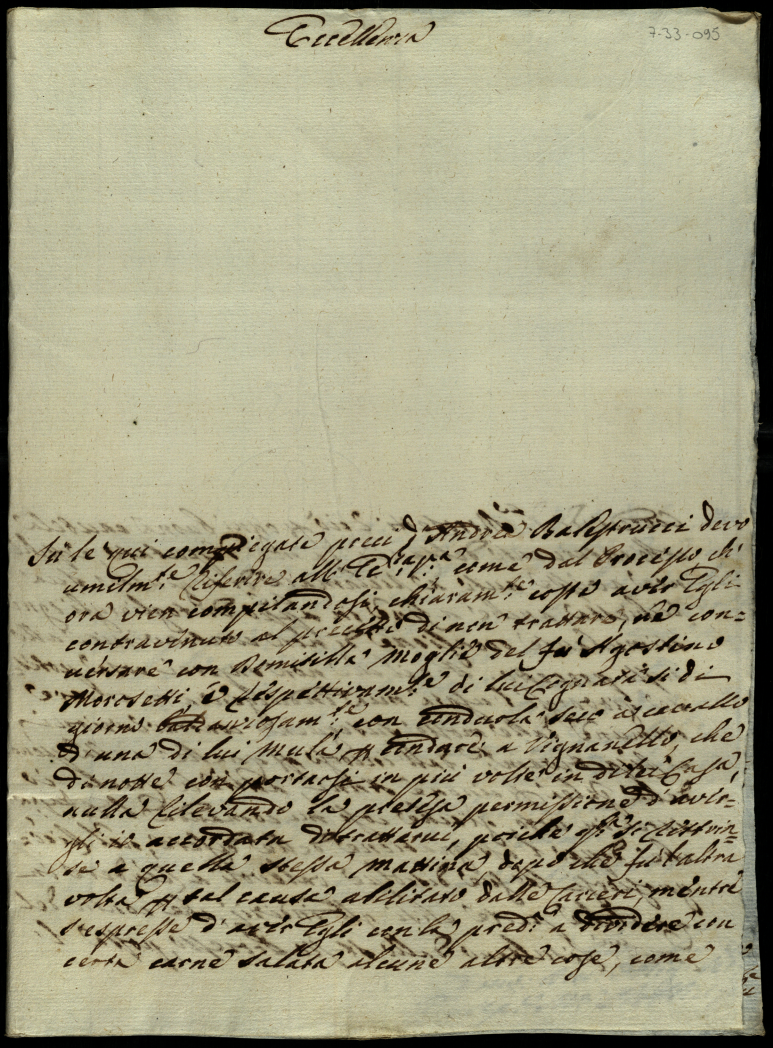 Eccellenza
7-33-095
Su le qui compiegate preci d'Andrea Balestrucci devo
umilm.te riferire all'E. come dal Processo che
ora vien compilandosi, chiaram.te costa aver Egli
contravenuto al precetto di non trattare, nè con=
versare con Domitilla Moglie del fù Agostino
Morosetti e rispettivam.te di lui Cognata sì di
giorno con condurla seco a cavallo
d'una di lui Mula p andare a Vignanello, che
di notte con portarsi in più volte in di lei Casa,
nulla rilevando la pretesa permissione d'aver=
gli io accordata di trattarvi, poichè si ristrin=
se a quella stessa mattina, dopo che fù l'altra
volta p tal causa abilitato dalle Carceri, mentre
s'espresse d'aver Egli con la pred.a a dividere con
certa carne salata alcune altre cose, come